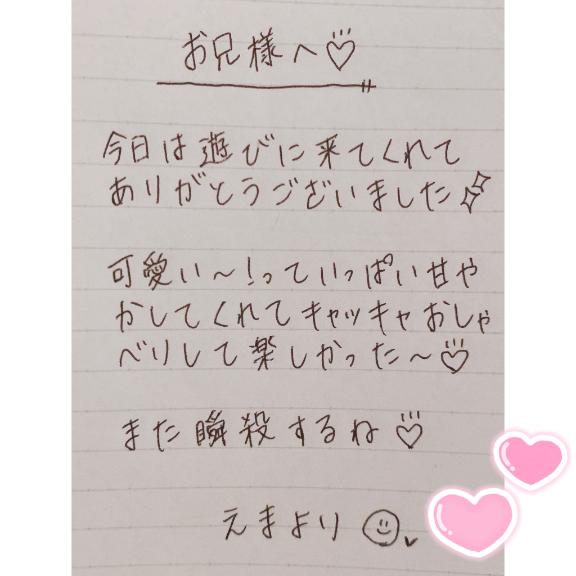 お兄様へ♡
今日は遊びに来てくれて
ありがとうございました
可愛い〜!っていっぱい甘や
かしてくれてキャッキャおしゃ
べりして楽しかった〜♡
また瞬殺するね♡
えまより